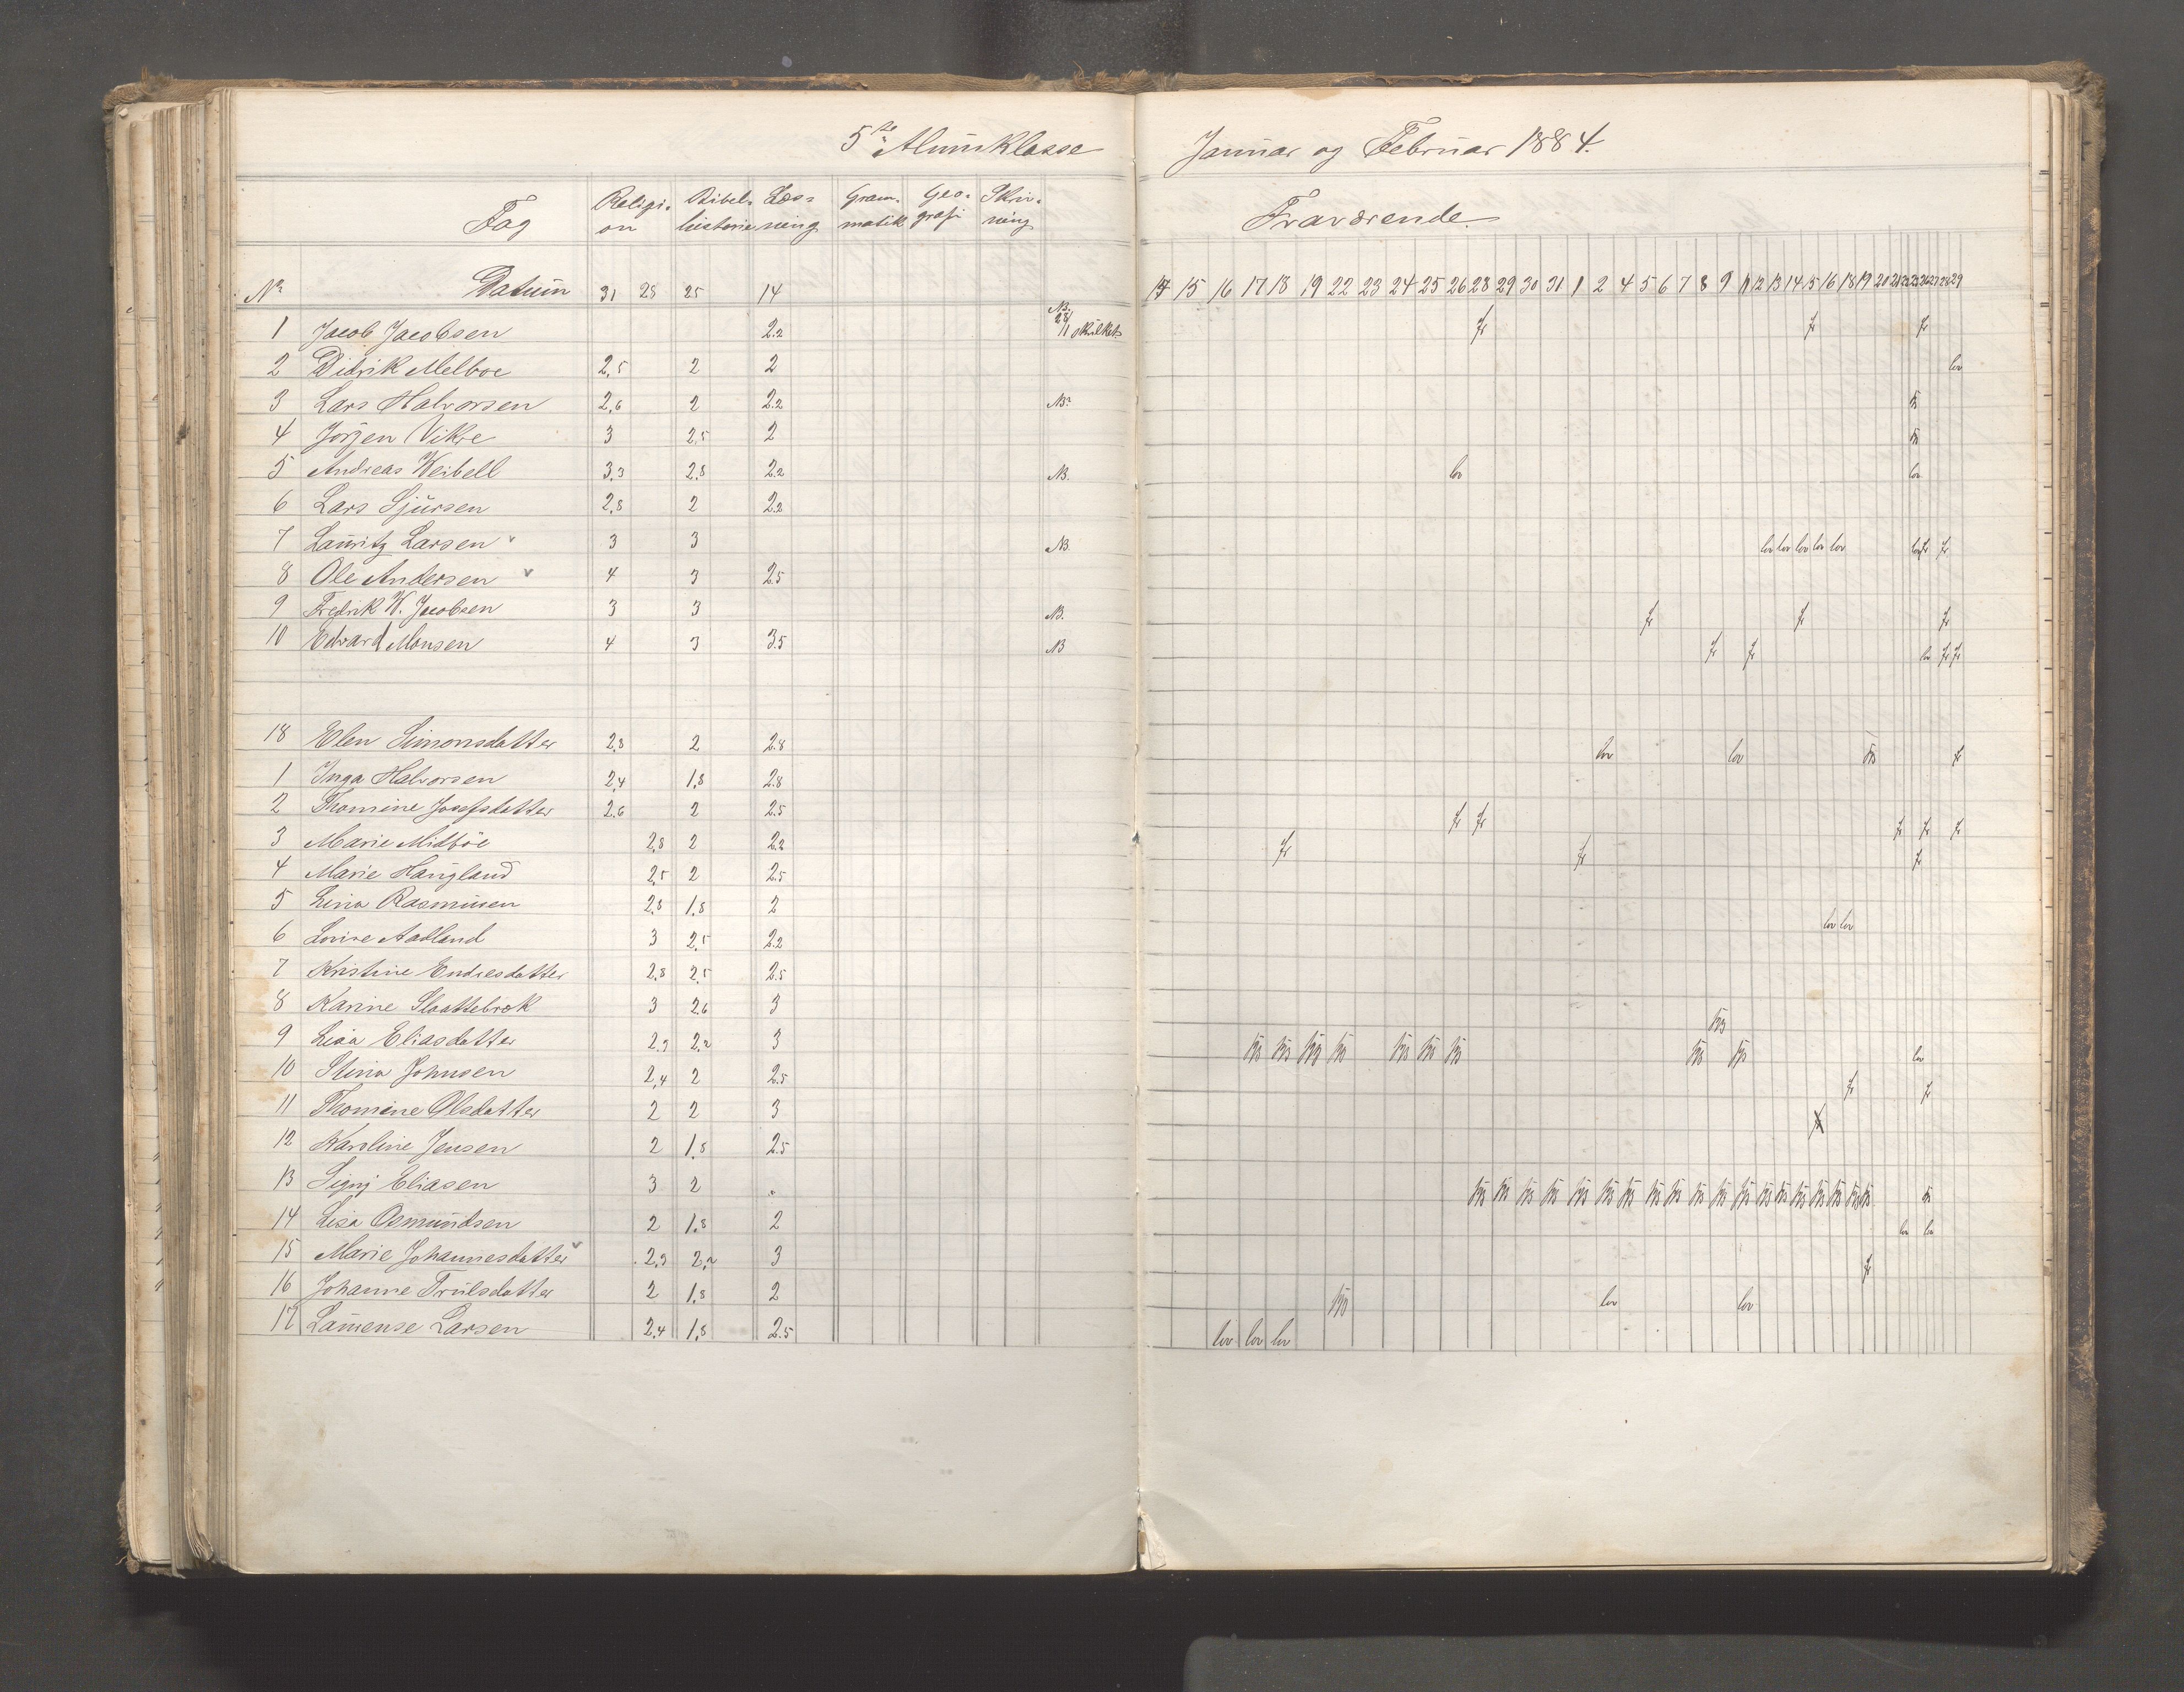 5te Almueklasse
Januar og Februar 1884.
Fag Religi- on Bibel- historie Læs- ning Gram- matik Geo- grafi Skriv- ning
Fraværende.
No Datum 31 28 25 14
15 16 17 18 19 22 23 24 25 26 28 29 30 31 1 2 4 5 6 7 8 9 11 12 13 14 15 16 18 19 20 21 22 23 26 27 28 29
1 Jacob Jacobsen 2.2 NB. fr fr fr
2 Didrik Melboe 2,5 2 2 lov
3 Lars Halvorsen 2,6 2 2.2 NB.
4 Jörgen Vikre 3 2,5 2
5 Andreas Weibell 3,3 2,8 2.2 NB. lov lov
6 Lars Sjursen 2,8 2 2.2
7 Lauritz Larsen v 3 3 NB lov lov lov lov lov lov fr fr
8 Ole Andersen v 4 3 2.5
9 Fredrik W. Jacobsen 3 3 NB. fr fr fr
10 Edvard Monsen 4 3 3.5 NB fr fr lov fr fr
18 Elen Simonsdatter 2,8 2 2.8 lov lov fr
1 Inga Halvorsen 2,4 1,8 2.8
2 Thomine Josefsdatter 2.6 2 2.5 fr fr fr fr fr
3 Marie Midböe 2,8 2 2.2 fr fr fr
4 Marie Haugland 2,5 2 2.5
5 Lina Rasmusen 2,8 1,8 2 lov lov
6 Lovise Aadland 3 2,5 2.2
7 Kristine Endresdatter 2,8 2,5 2.5
8 Karine Slaattebrek 3 2,6 3
9 Lisa Eliasdatter 2,3 2,2 3 lov
10 Stina Johnsen 2,4 2 2.5 fr fr
11 Thomine Olsdatter 2 2 3
12 Karoline Jensen 2 1,8 2.5
13 Signj Eliasen 3 2
14 Lisa Osmundsen 2 1,8 2 lov lov
15 Marie Johannesdatter v 2,3 2,2 3 fr
16 Johanne Trulsdatter 2 1,8 2 lov lov
17 Laurense Larsen 2,4 1,8 2.5 lov lov lov